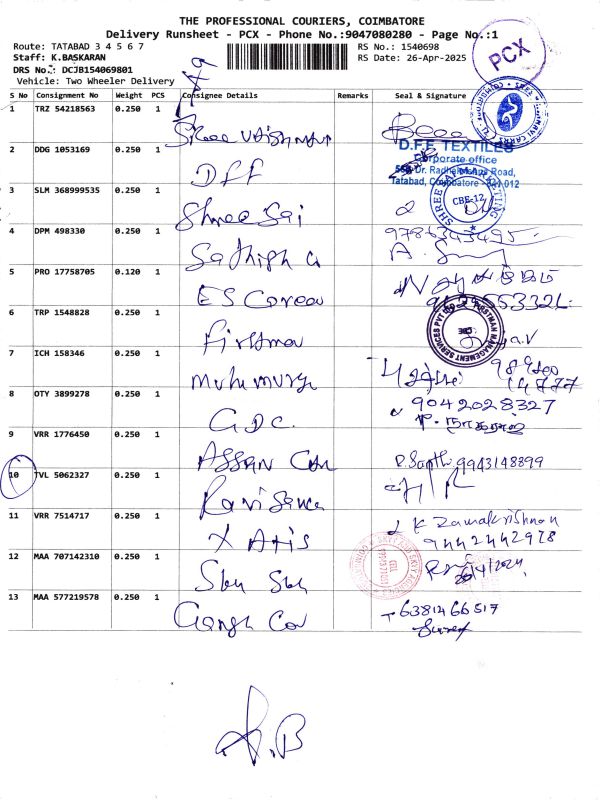 THE PROFESSIONAL COURIERS, COIMBATORE
Delivery Runsheet - PCX - Phone No.:9047080280 - Page No.:1
Route: TATABAD 3 4 5 6 7
RS No.: 1540698
Staff: K.BASKARAN
RS Date: 26-Apr-2025
DRS No.: DCJB154069801
Vehicle: Two Wheeler Delivery
PCX
S No Consignment No Weight PCS Consignee Details Remarks Seal & Signature
1 TRZ 54218563 0.250 1
Shree Vaishnavi
2 DDG 1053169 0.250 1
DFF
D.F.F. TEXTILES
Corporate office
Dr. Radhakrishnan Road,
Tatabad, Coimbatore - 641 012
3 SLM 368999535 0.250 1
Shree Sai
CBE-12
4 DPM 498330 0.250 1
Sathish G
9786343495
5 PRO 17758705 0.120 1
ES Corea
6 TRP 1548828 0.250 1
Firstman
FIRSTMAN MANAGEMENT SERVICES PVT
CBE
7 ICH 158346 0.250 1
8 OTY 3899278 0.250 1
GDC.
9042028327
9 VRR 1776450 0.250 1
Assan Car
9943148899
10 TVL 5062327 0.250 1
11 VRR 7514717 0.250 1
X Atis
K Ramakrishnan
9442442978
12 MAA 707142310 0.250 1
Sky Sky
26/4/2024
13 MAA 577219578 0.250 1
Ganga Cov
6381466517
Suresh
K.B